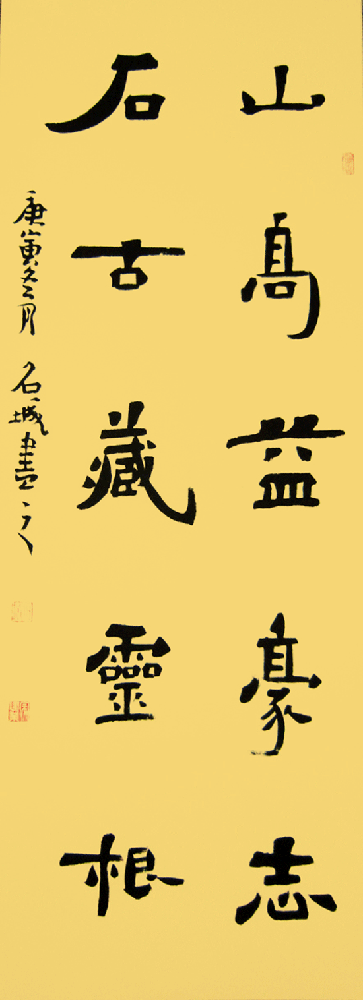 山高益豪志
石古藏靈根
庚寅冬月 名城書之